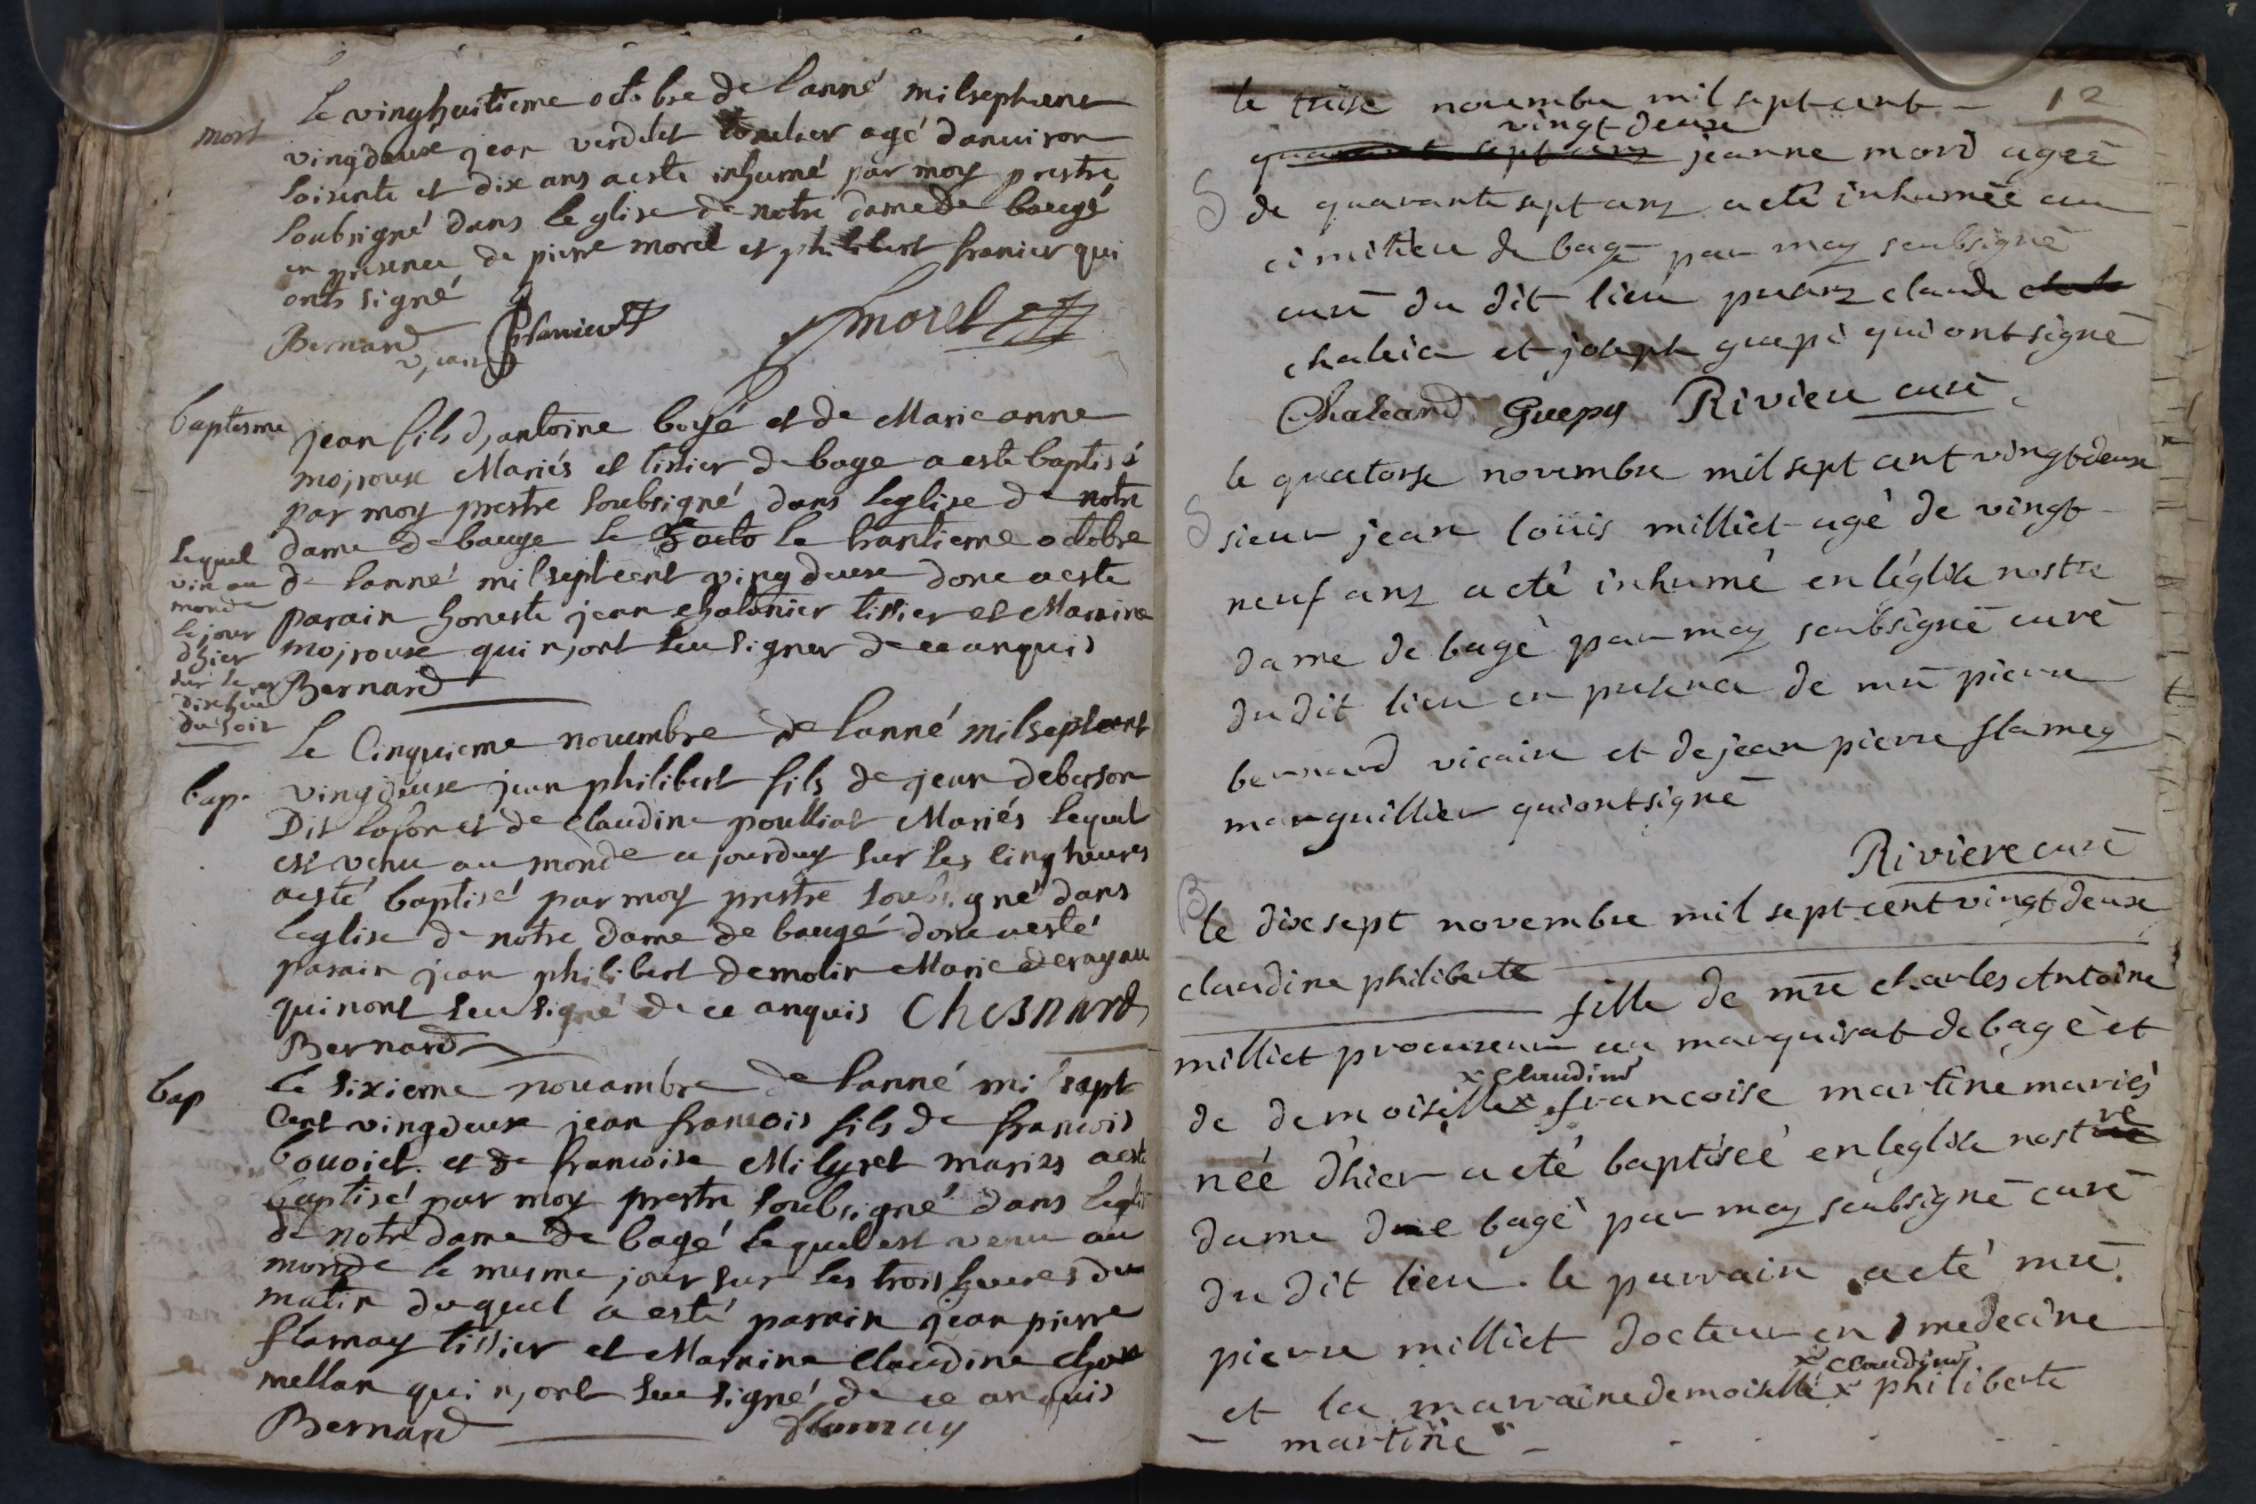 mort
Le vinghuitieme octobre de l'anné milseptcent
vingdeuse jean verdelet agé danuiron
soisente et dix ans a esté inhumé par moy prestre
soubsigné dans leglise de notre dame de baugé
en presence de pierre morel et philibert franier qui
onts signé
Bernard vicaire Morel
baptesme
jean fils d'antoine boyé et de Marie anne
mojroux Mariés et tissier de bage a esté baptisé
par moy prestre soubsigné dans leglise de notre
dame de bauge le le trantieme octobre
de lanné milseptcent vingdeuse donc a esté
parain honeste jean chalonier tissier et Marrine
mojrouse qui n'ont seu signer de ce anquis
Bernard
lequel
vin au
monde
le jour
dhier
sur les
dix heu
du soir
Le Cinquieme nouembre de lanné milseptcent
bap.
vingdeuse jean philibert fils de jean deberson
Dit lafon et de Claudine poulliat Mariés lequel
est venu au monde ajourduy sur les cinq heures
a esté baptisé par moy prestre soubsigné dans
leglise de notre dame de baugé donc a esté
parain jean philibert demolin Marie
qui nont seu signé de ce anquis Chesnard
Bernard
bap
Le sixieme nouambre de lanné mil sapt
Cent vingdeux jean francois fils de francois
bouoiet et de francoise Milyret mariés a esté
baptisé par moy prestre soubsigné dans leglise
de notre dame de bagé lequel est venu au
monde le mesme jour sur les trois heures du
matin duquel a esté parrin jean pierre
flamay tissier et Marrine Claudine
mellan qui n'ont seu signé de ce anquis
Bernard flamay
12
le treise novembre mil sept cent
vingt deux
quarante sept ans jeanne mord ageé
S
de quarante sept ans a eté inhumeé au
cimitieu de bagé par moy soubsigné
curé du dit lieu pnts claude
chaleia et joseph guepi qui ont signé
Chaleard Guepy Riviere curé
le quatorse novembre mil sept cent vingt deux
S
sieur jean loüis milliet agé de vingt
neuf ans a eté inhumé en léglise nostre
dame de bagé par moy soubsigné curé
du dit lieu en presence de mre pierre
bernard vicaire et de jean pierre flamey
marguillier qui ont signé
Riviere curé
B
le dix sept novembre mil sept cent vingt deux
claudine philiberte fille de mre charles Antoine
milliet procureur au marquisat de bagé et
x claudine
de demoiselle x francoise martine mariés
neé d'hier a eté baptiseé en leglise nostre
dame de bagé par moy soubsigné curé
du dit lieu. le parrain a eté mre
pierre milliet docteur en medecine
x claudine
et la marraine demoiselle x philiberte
martine